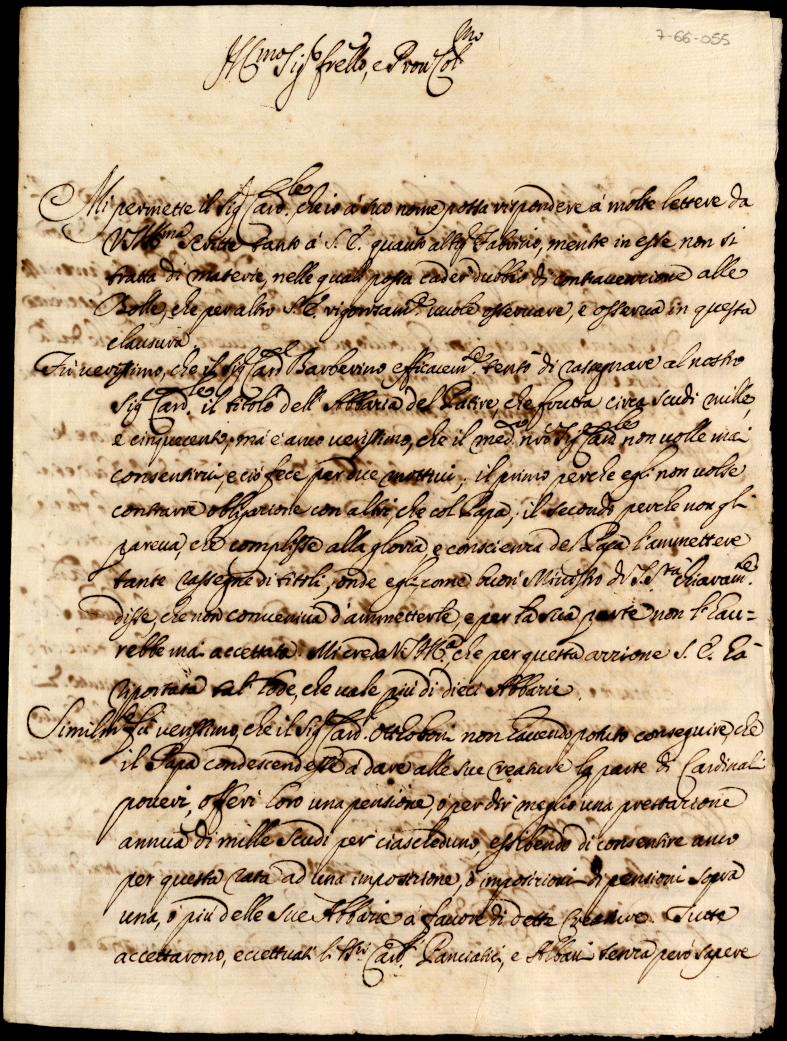 7-66-055
Ill.mo Sig.r frello, e Pron Col.mo
Mi permette il Sig.r Card.le che io à suo nome possa rispondere à molte lettere da
V.S. Ill.ma scritte tanto à S. E. quanto al Sig.r Fabricio, mentre in esse non si
tratta di materie, nelle quali possa cader dubbio di contravenzione alle
Bolle, che per altro S. E. rigorosam.te vuole osservare, e osserva in questa
clausura.
Fù verissimo, che il Sig.r Card.l Barberino efficacem.te tentò di rassegnare al nostro
Sig.r Card.le il titolo dell'Abbazia del Patire, che frutta circa scudi mille,
e cinquecento, mà è anco verissimo, che il med.mo nro Sig.r Card.le non volle mai
consentirvi, e ciò fece per due mottivi; il primo perche egli non volse
contrarre obligazione con altri, che col Papa; il secondo perche non gli
pareva, che complisse alla gloria, e conscienza del Papa l'ammettere
tante rassegne di titoli, onde egli come buon Ministro di S. S.tà chiaram.te
disse, che non conveniva d'ammetterle, e per la sua parte non l'hau=
rebbe mai accettata. Mi creda V.S. Ill.ma che per questa azzione S. E. hà
riportata tal lode, che vale più di dieci Abbazie.
Similm.te fù verissimo, che il Sig.r Card.l Otthoboni non havendo potuto conseguire, che
il Papa condescendesse à dare alle sue creature la parte di Cardinali
poveri, offerì loro una pensione, ò per dir meglio una prestazione
annua di mille scudi per ciascheduno, essibendo di consentire anco
per questa rata ad una imposizione, ò imposizioni di pensioni sopra
una, ò più delle sue Abbazie à favore di dette Creature. Tutte
accettarono, eccettuati li SS.ri Card.li Panciatici, e Albani senza però sapere